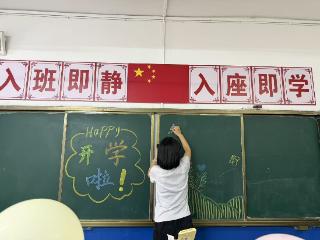 入班即静 入座即学
Happy
开学
啦！